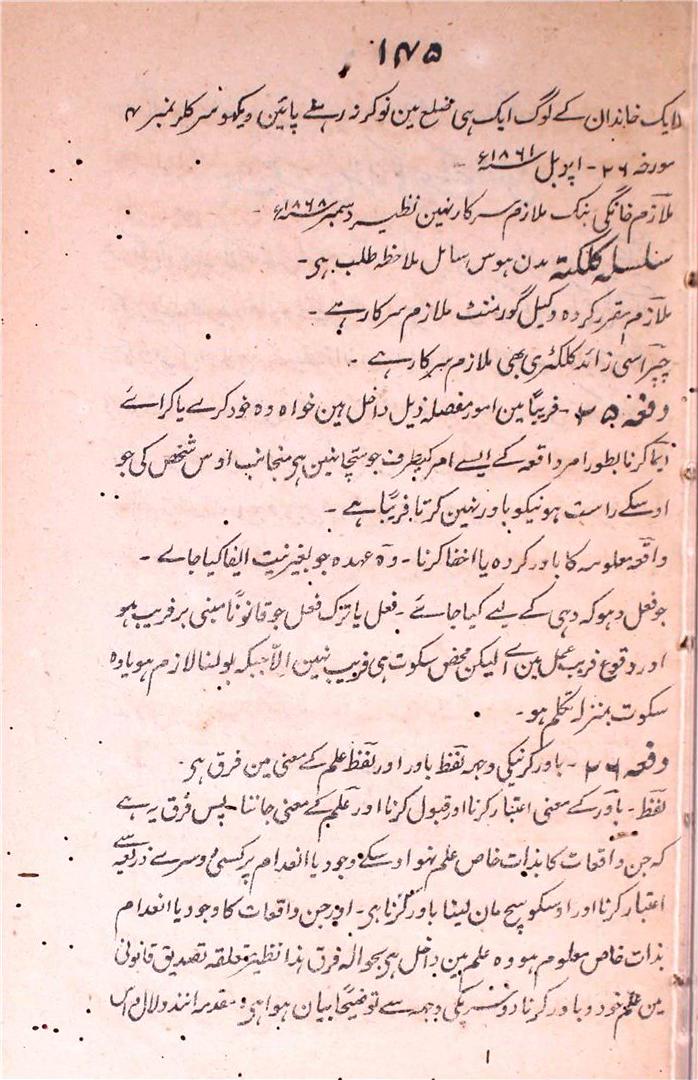 ۱۴۵
ایک خاندان کے لوگ ایک ہی ضلع مین نوکر نہ رہنے پائین دیکھو سرکلر نمبر ۴
مورخہ ۲۶ - اپریل ۱۸۶۱ء -
ملازم خانگی بنک ملازم سرکار نہین نظیر دسمبر ۱۸۶۸ء -
سلسلہ کلکتہ بدن ہوس سائل ملاحظہ طلب ہی -
ملازم مقرر کردہ وکیل گورمنٹ ملازم سرکار ہے -
چپراسی زائد کلکٹری بھی ملازم سرکار ہے -
دفعہ ۲۵ - فریباً مین امور مفصلہ ذیل داخل ہین خواہ وہ خود کرے یا کرائے
ایما کرنا بطور امر واقعہ کے ایسے امر کیطرف جو سچا نہین ہی منجانب اوس شخص کی جو
اوسکے راست ہونیکو باور نہین کرتا فریباً ہے -
واقعہ معلومہ کا باور کردہ یا اخفا کرنا - وہ عہدہ جو بغیر نیت ایفا کیا جاے -
جو فعل دہوکہ دہی کے لیے کیا جائے - فعل یا ترک فعل جو قانوناً مبنی بر فریب ہو
اور وقوع فریب عمل مین آے لیکن محض سکوت ہی فریب نہین الّا جبکہ بولنا لازم ہو یا وہ
سکوت بمنزلہ تکلم ہو -
دفعہ ۲۶ - باور کرنیکی وجہہ لفظ باور اور لفظ علم کے معنی مین فرق ہی -
لفظ - باور کے معنی اعتبار کرنا اور قبول کرنا اور علم کے معنی جاننا - پس فرق یہ ہے
کہ جن واقعات کا بذات خاص علم نہو اوسکے وجود یا انعدام پر کسی دوسرے ذریعہ سے
اعتبار کرنا اور اوسکو سچ مان لینا باور کرنا ہی - اور جن واقعات کا وجود یا انعدام
بذات خاص معلوم ہو وہ علم مین داخل ہی بحوالہ فرق ہذا نظیر متعلقہ تصدیق قانونی
مین علم خود و باور کرنا دوسریکی وجہہ سے توضیحاً بیان ہوا ہی و مقدمہ انند دلال
۱